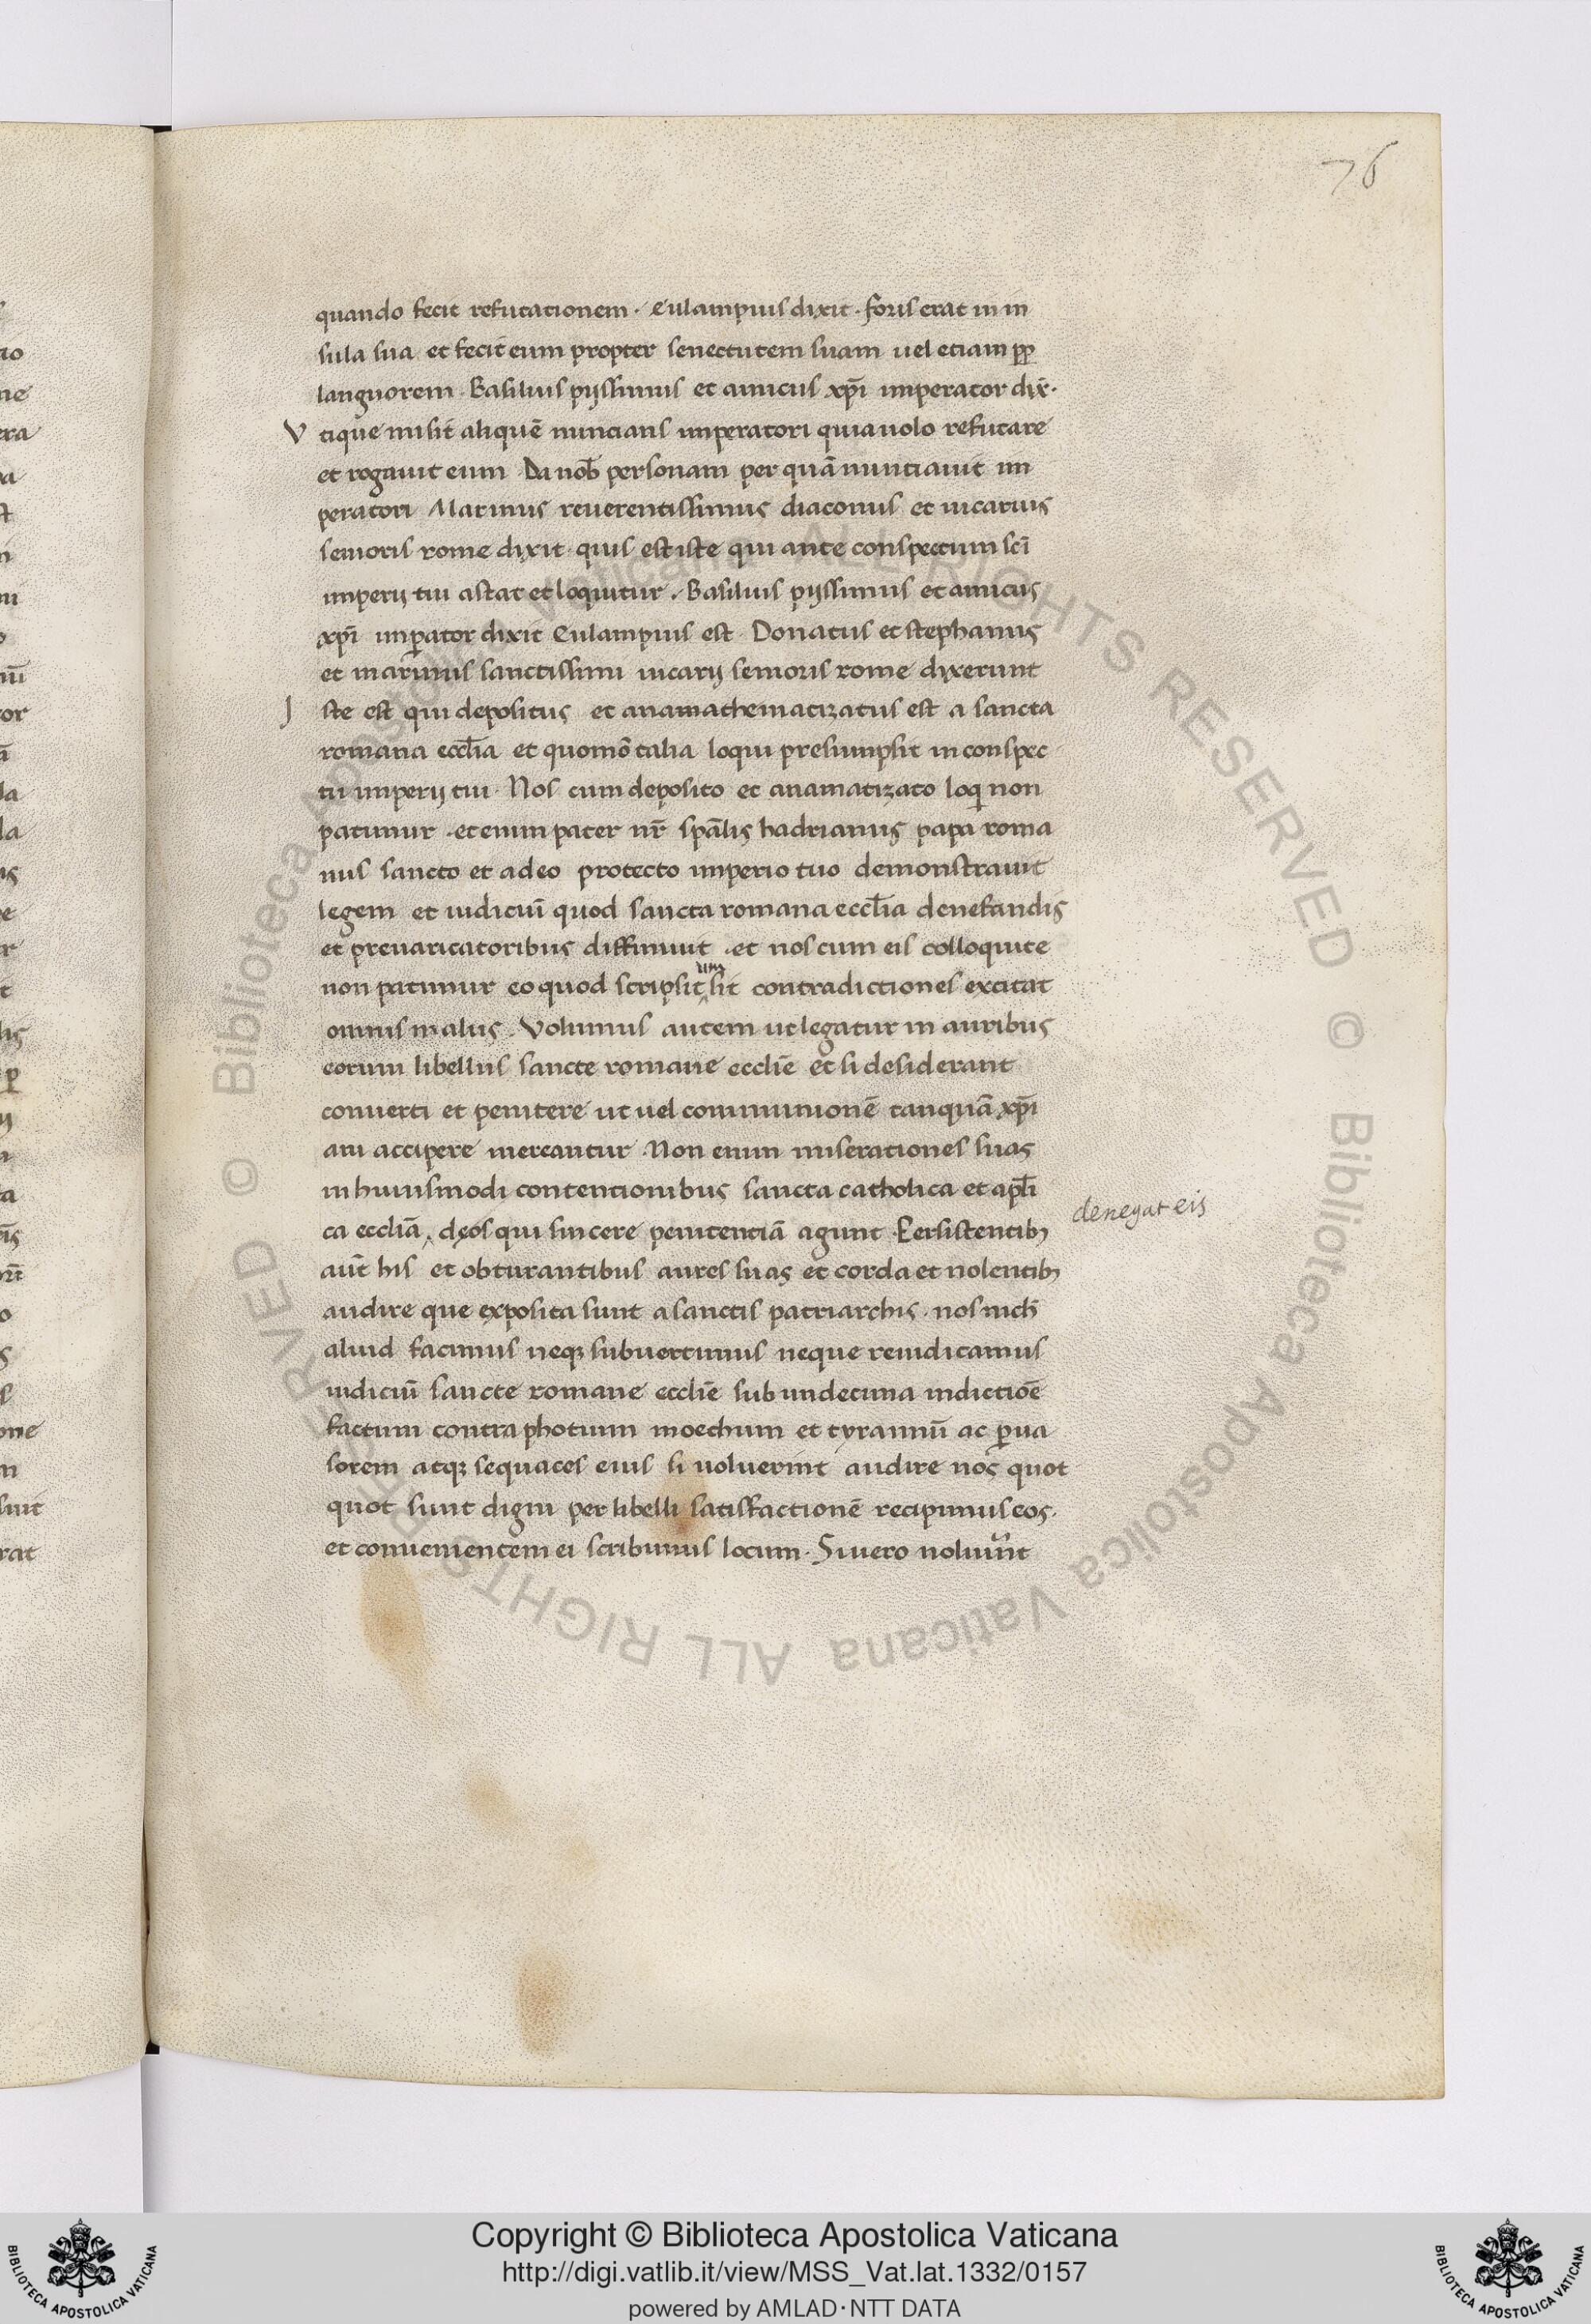 76
quando fecit refutationem · Eulampius dixit · foris erat in in
sula sua et fecit eum propter senectutem suam uel etiam pp
languorem · Basilius pijssimus et amicus xpi imperator dix̄·
V tique misit aliquē nuncians imperatori quia uolo refutare
et rogauit eum · Da nob̄ personam per quā nunciauit im
peratori Marinus reuerentissimus diaconus et uicarius
senioris rome dixit · quis est iste qui ante conspectum sc̄i
imperij tui astat et loquitur · Basilius pijssimus et amicus
xp̄i imp̄ator dixit Eulampius est · Donatus et stephanus
et marinus sanctissimi uicarij senioris rome dixerunt
I ste est qui depositus et anamathematizatus est a sancta
romana eccl̄ia et quomō talia loqui presumpsit in conspec
tu imperij tui · Nos cum deposito et anamatizato loq̄ non
patimur · et enim pater nr̄ sp̄alis hadrianus papa roma
nus sancto et a deo protecto imperio tuo demonstrauit
legem et iudiciū quod sancta romana eccl̄ia de nefandis
et preuaricatoribus diffiniuit · et nos cum eis colloquite
um
non patimur eo quod scripsit ‸ sit contradictiones excitat
omnis malus · Volumus autem ut legatur in auribus
eorum libellus sancte romane eccl̄ie et si desiderant
conuerti et penitere ut uel communionē tanquā xp̄i
ani accipere mereantur · Non enim miserationes suas
in huiusmodi contentionibus sancta catholica et apl̄i
denegat eis
ca eccl̄iā ‸ d ęos qui sincere penitentiā agunt · Persistentibꝫ
aūt his et obturantibus aures suas et corda et nolentibꝫ
audire que exposita sunt a sanctis patriarchis · nos nich̄
aliud facimus neqꝫ subuertimus neque reiudicamus
iudiciū sancte romane eccl̄ie sub undecima indictiōe
factum contra photium moechum et tyrannū ac p̄ua
sorem atqꝫ sequaces eius si uoluerint audire nos quot
quot sunt digni per libelli satisfactionē recipimus eos·
et conuenientem ei scribimus locum · Si uero noluūnt
ALL RIGHTS RESERVED © Biblioteca Apostolica Vaticana
ALL RIGHTS RESERVED © Biblioteca Apostolica Vaticana
Copyright © Biblioteca Apostolica Vaticana
http://digi.vatlib.it/view/MSS_Vat.lat.1332/0157
powered by AMLAD·NTT DATA
BIBLIOTECA APOSTOLICA VATICANA
BIBLIOTECA APOSTOLICA VATICANA